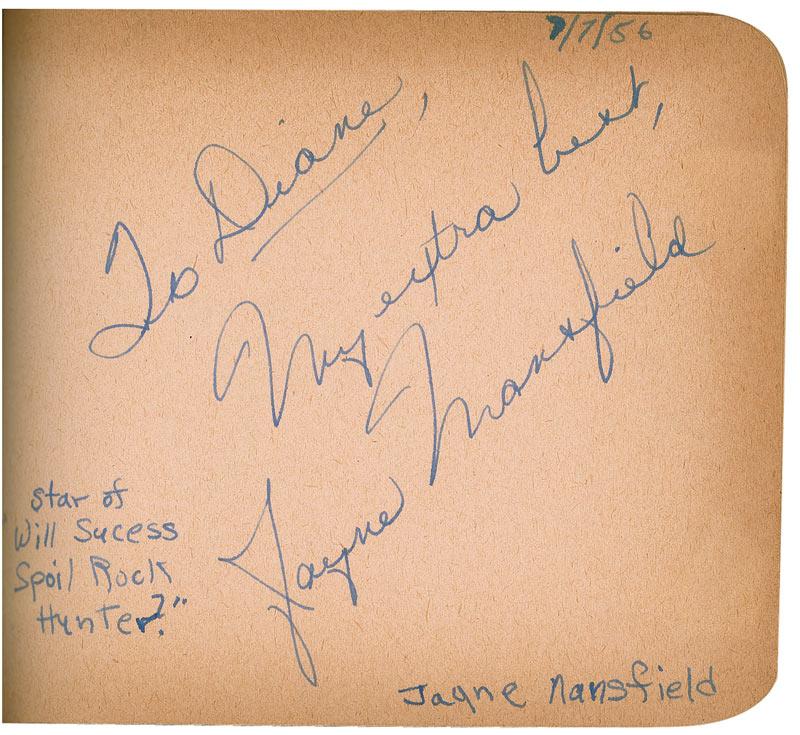 7/7/56
To Diane,
My extra best,
Jayne Mansfield
star of
"Will Sucess
Spoil Rock
Hunter?"
Jayne Mansfield